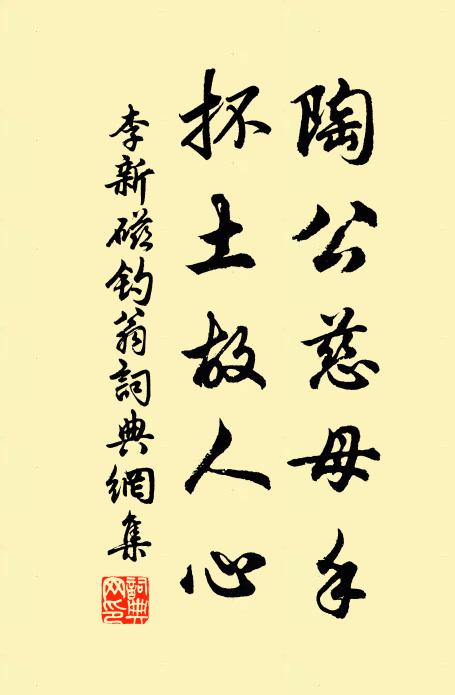 陶公慈母手
抔土故人心
李新磁钓翁詞典網集
詞典网印